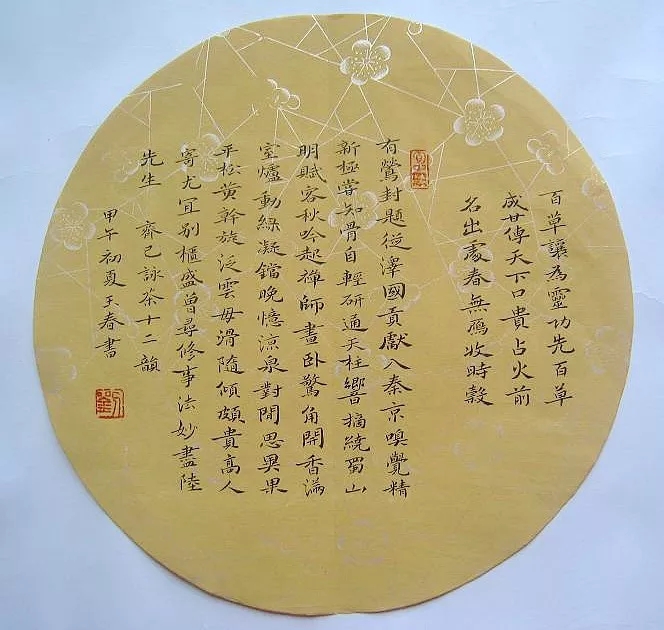 百草讓為靈功先百草
成甘傳天下口貴占火前
名出處春無鴈收時穀
有鶯封題從澤國貢獻入秦京嗅覺精
新極嘗知骨自輕研通天柱響摘繞蜀山
明賦客秋吟起禪師晝臥驚角開香滿
室爐動綠凝鐺晚憶涼泉對閒思異果
平松黃幹旋泛雲母滑隨傾頗貴高人
寄尤宜別櫃盛曾尋修事法妙盡陸
先生 齊己詠茶十二韻
甲午初夏玉春書